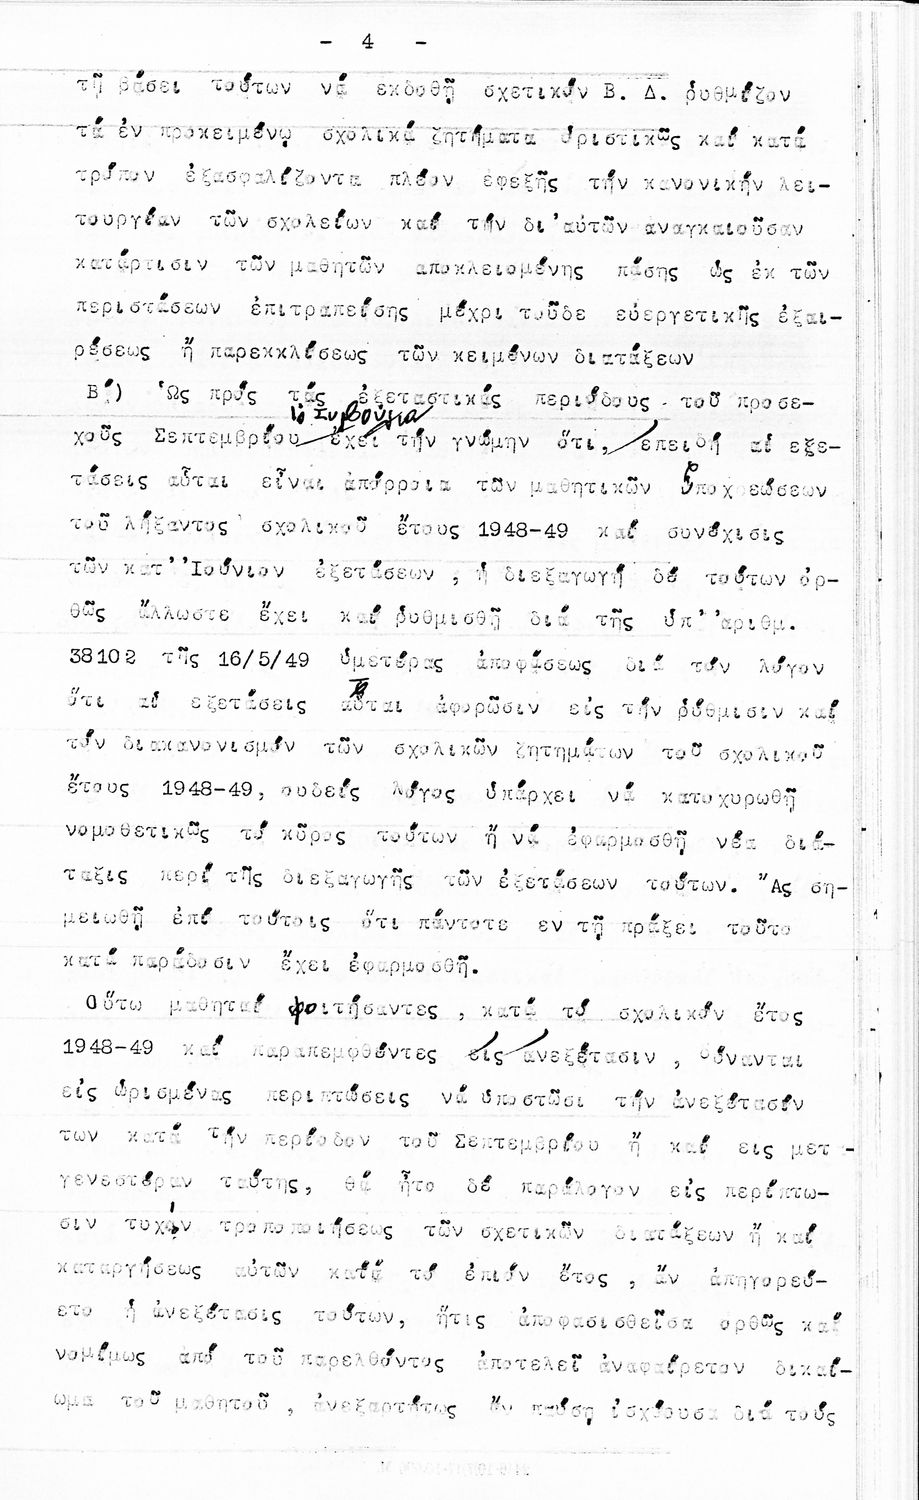 - 4 -
τῇ βάσει τούτων νά εκδοθῇ σχετικόν Β. Δ. ῥυθμίζον
τά ἐν προκειμένῳ σχολικά ζητήματα ὁριστικῶς καί κατά
τρόπον ἐξασφαλίζοντα πλέον ἐφεξῆς τήν κανονικήν λει-
τουργίαν τῶν σχολείων καί τήν δι'αὐτῶν αναγκαιοῦσαν
κατάρτισιν τῶν μαθητῶν αποκλειομένης πάσης ὡς ἐκ τῶν
περιστάσεων ἐπιτραπείσης μέχρι τοῦδε εὐεργετικῆς ἐξαι-
ρέσεως ἤ παρεκκλίσεως τῶν κειμένων διατάξεων
Β΄) Ὡς πρός τάς ἐξεταστικάς περιόδους τοῦ προσε-
τό Συμβούλιο
χοῦς Σεπτεμβρίου ἔχει τήν γνώμην ὅτι, επειδή αἱ εξε-
τάσεις αὗται εἶναι ἀπόρροια τῶν μαθητικῶν ὑποχρεώσεων
τοῦ λήξαντος σχολικοῦ ἔτους 1948-49 καί συνέχισις
τῶν κατ' Ἰούνιον ἐξετάσεων , ἡ διεξαγωγή δέ τούτων ὀρ-
θῶς ἄλλωστε ἔχει καί ῥυθμισθῇ διά τῆς ὑπ' ἀριθμ.
38102 τῆς 16/5/49 ὑμετέρας ἀποφάσεως διά τόν λόγον
ὅτι αἱ εξετάσεις αὗται ἀφορῶσιν εἰς τήν ῥύθμισιν καί
τόν διακανονισμόν τῶν σχολικῶν ζητημάτων τοῦ σχολικοῦ
ἔτους 1948-49, ουδείς λόγος ὑπάρχει νά κατοχυρωθῇ
νομοθετικῶς τό κῦρος τούτων ἤ νά ἐφαρμοσθῇ νέα διά-
ταξις περί τῆς διεξαγωγῆς τῶν ἐξετάσεων τούτων. Ἄς ση-
μειωθῇ ἐπί τούτοις ὅτι πάντοτε εν τῇ πράξει τοῦτο
κατά παράδοσιν ἔχει ἐφαρμοσθῇ.
Οὕτω μαθηταί φοιτήσαντες , κατά τό σχολικόν ἔτος
1948-49 καί παραπεμφθέντες εἰς ανεξέτασιν , δύνανται
εἰς ὡρισμένας περιπτώσεις νά ὑποστῶσι τήν ἀνεξέτασίν
των κατά τήν περίοδον τοῦ Σεπτεμβρίου ἤ καί εις μετ -
γενεστέραν ταύτης, θά ἦτο δέ παράλογον εἰς περίπτω-
σιν τυχόν τροποποιήσεως τῶν σχετικῶν διατάξεων ἤ καί
καταργήσεως αὐτῶν κατά τό ἐπιόν ἔτος , ἄν ἀπηγορεύ-
ετο ἡ ἀνεξέτασις τούτων, ἥτις ἀποφασισθεῖσα ορθῶς καί
νομίμως ἀπό τοῦ παρελθόντος ἀποτελεῖ ἀναφαίρετον δικαί-
ωμα τοῦ μαθητοῦ , ἀνεξαρτήτως ἄν παύσῃ ἰσχύουσα διά τούς